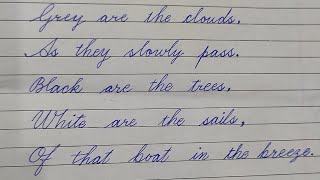 Grey are the clouds,
As they slowly pass.
Black are the trees,
White are the sails,
Of that boat in the breeze.